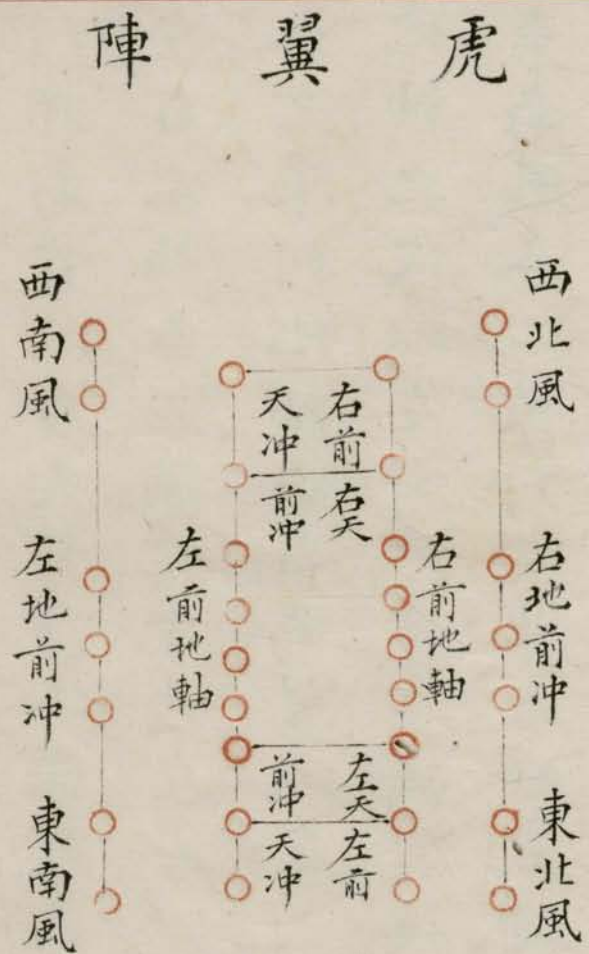 虎翼陣
西北風
右地前冲
東北風
右前地軸
右前
天冲
右天
前冲
左天
前冲
左前
天冲
左前地軸
西南風
左地前冲
東南風